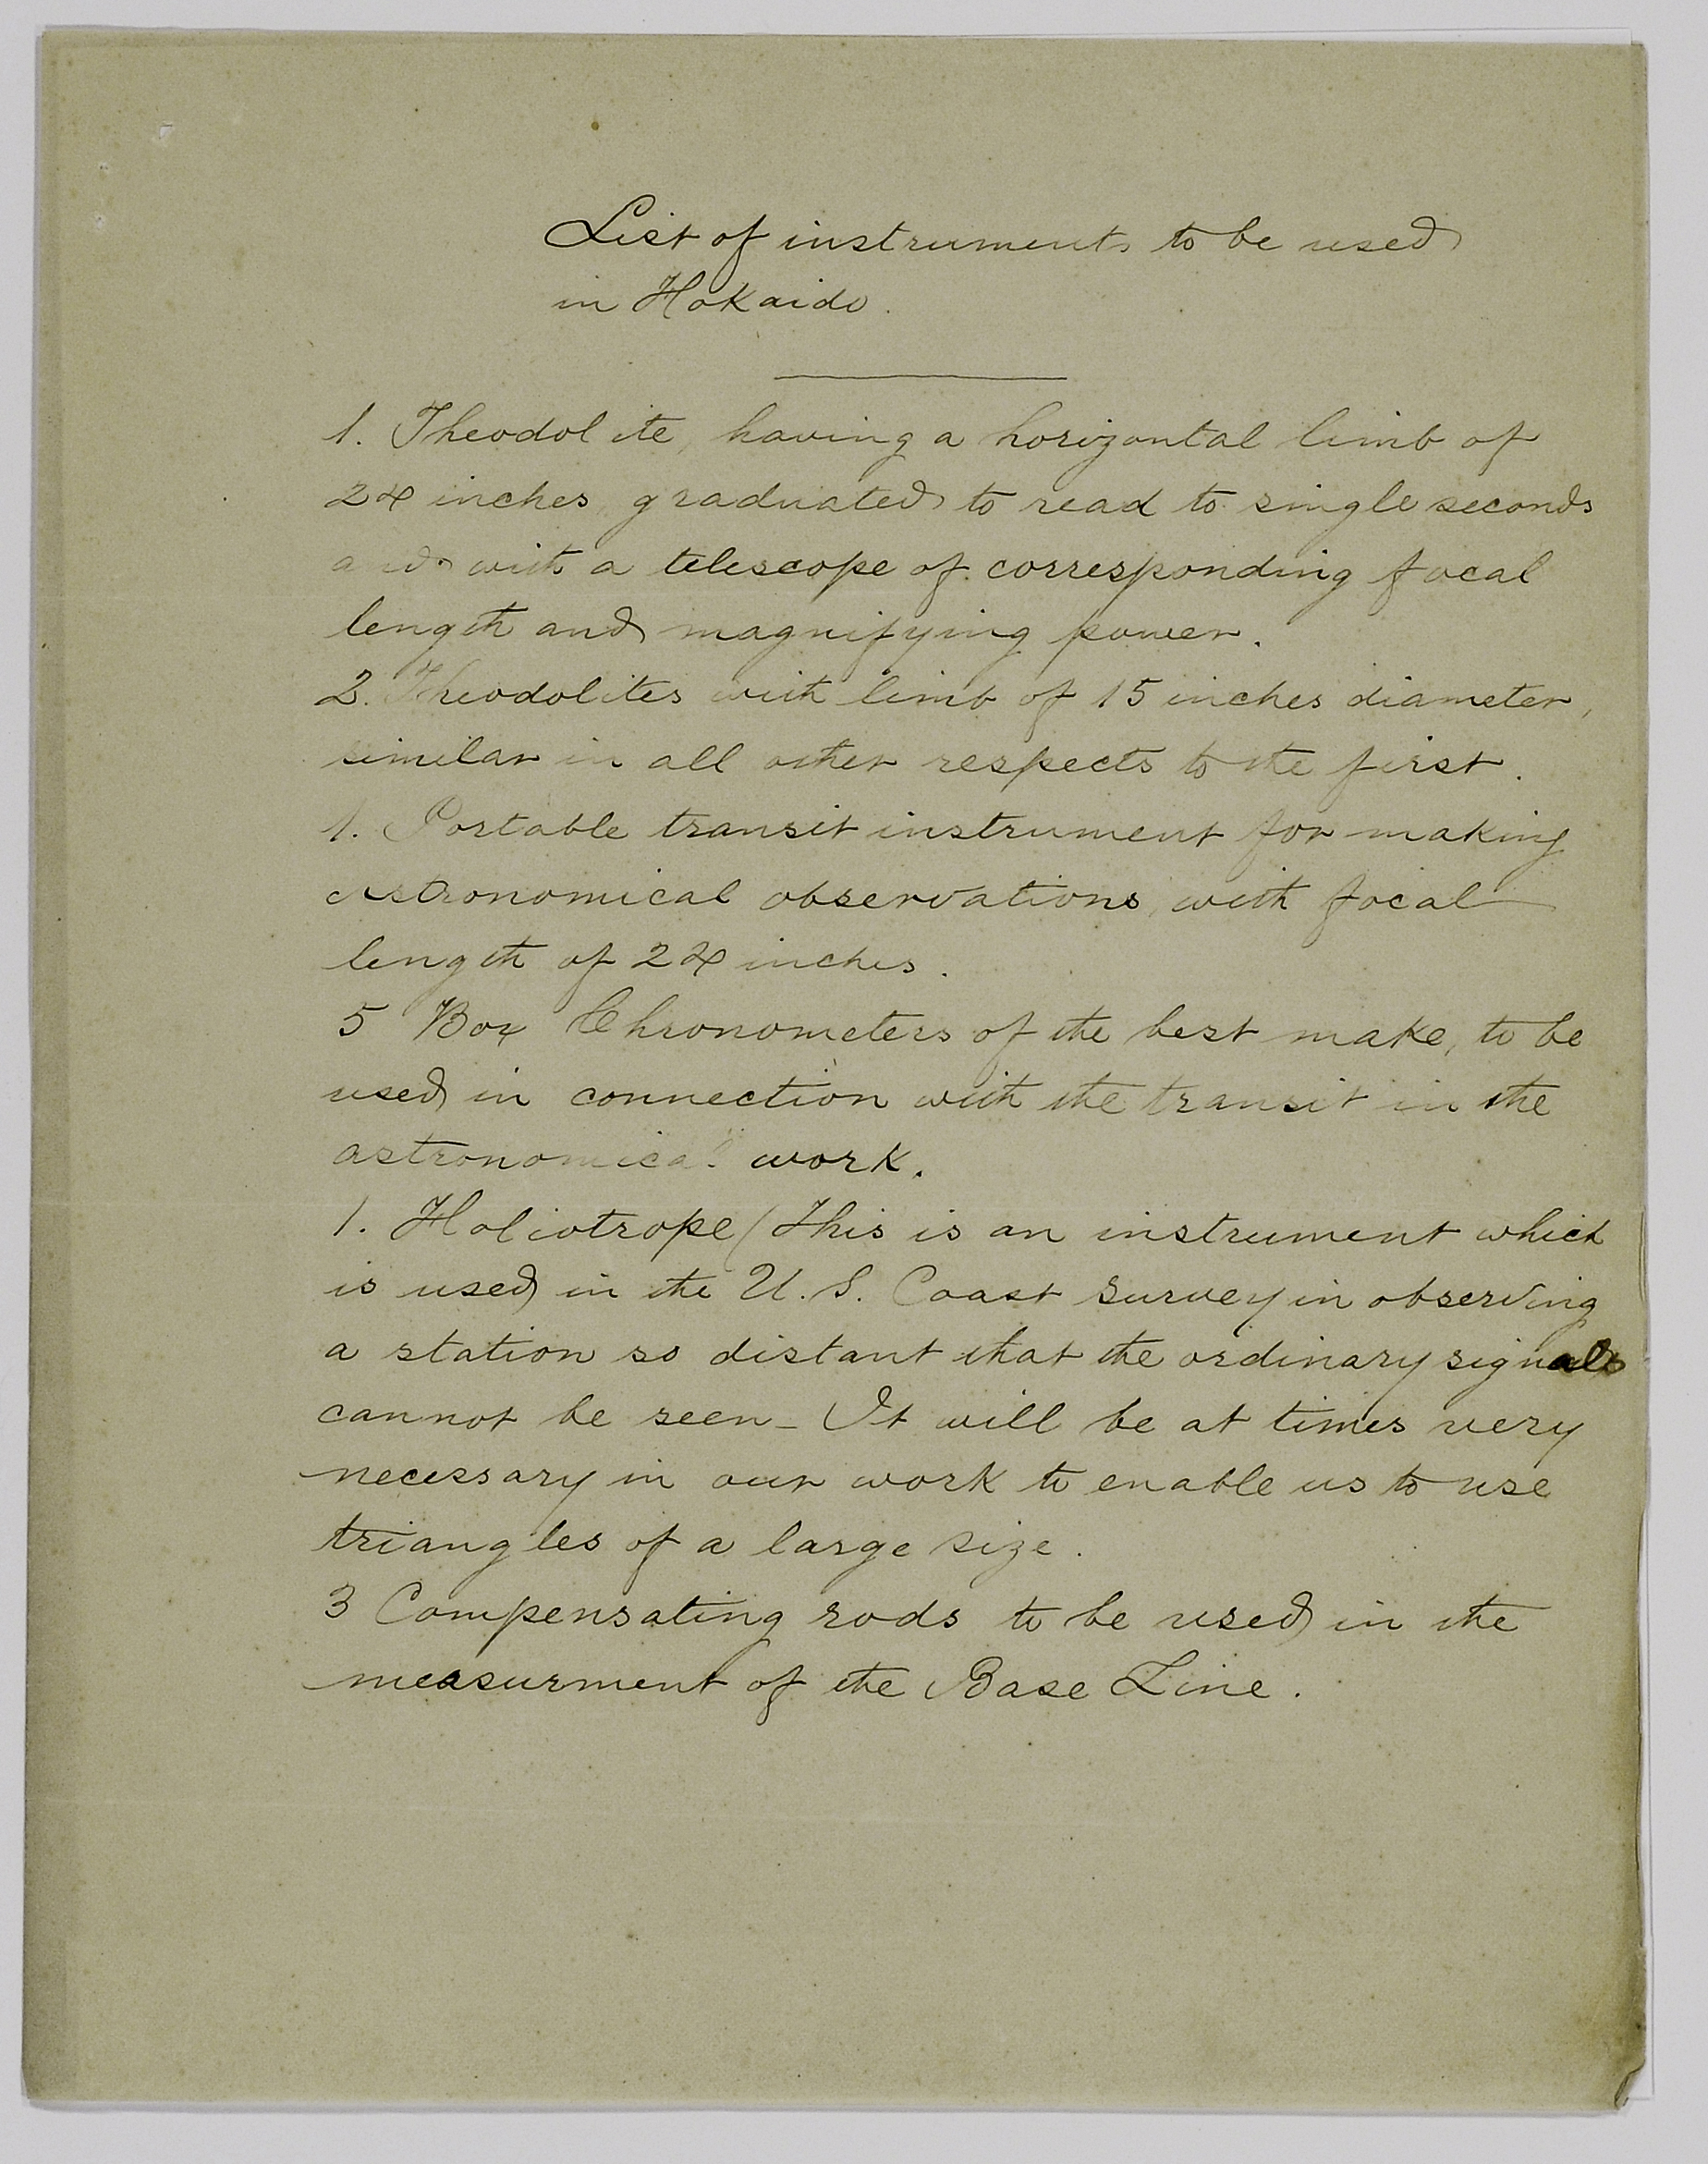 List of instruments to be used
in Hokaido.
1. Theodolite, having a horizontal limb of
24 inches, graduated to read to single seconds
and with a telescope of corresponding focal
length and magnifying power.
2. Theodolites with limb of 15 inches diameter,
similar in all other respects to the first.
1. Portable transit instrument for making
astronomical observations, with focal
length of 24 inches.
5 Box Chronometers of the best make, to be
used in connection with the transit in the
astronomical work.
1. Holiotrope (This is an instrument which
is used in the U. S. Coast Survey in observing
a station so distant that the ordinary signals
cannot be seen - It will be at times very
necessary in our work to enable us to use
triangles of a large size.
3 Compensating rods to be used in the
measurment of the Base Line.